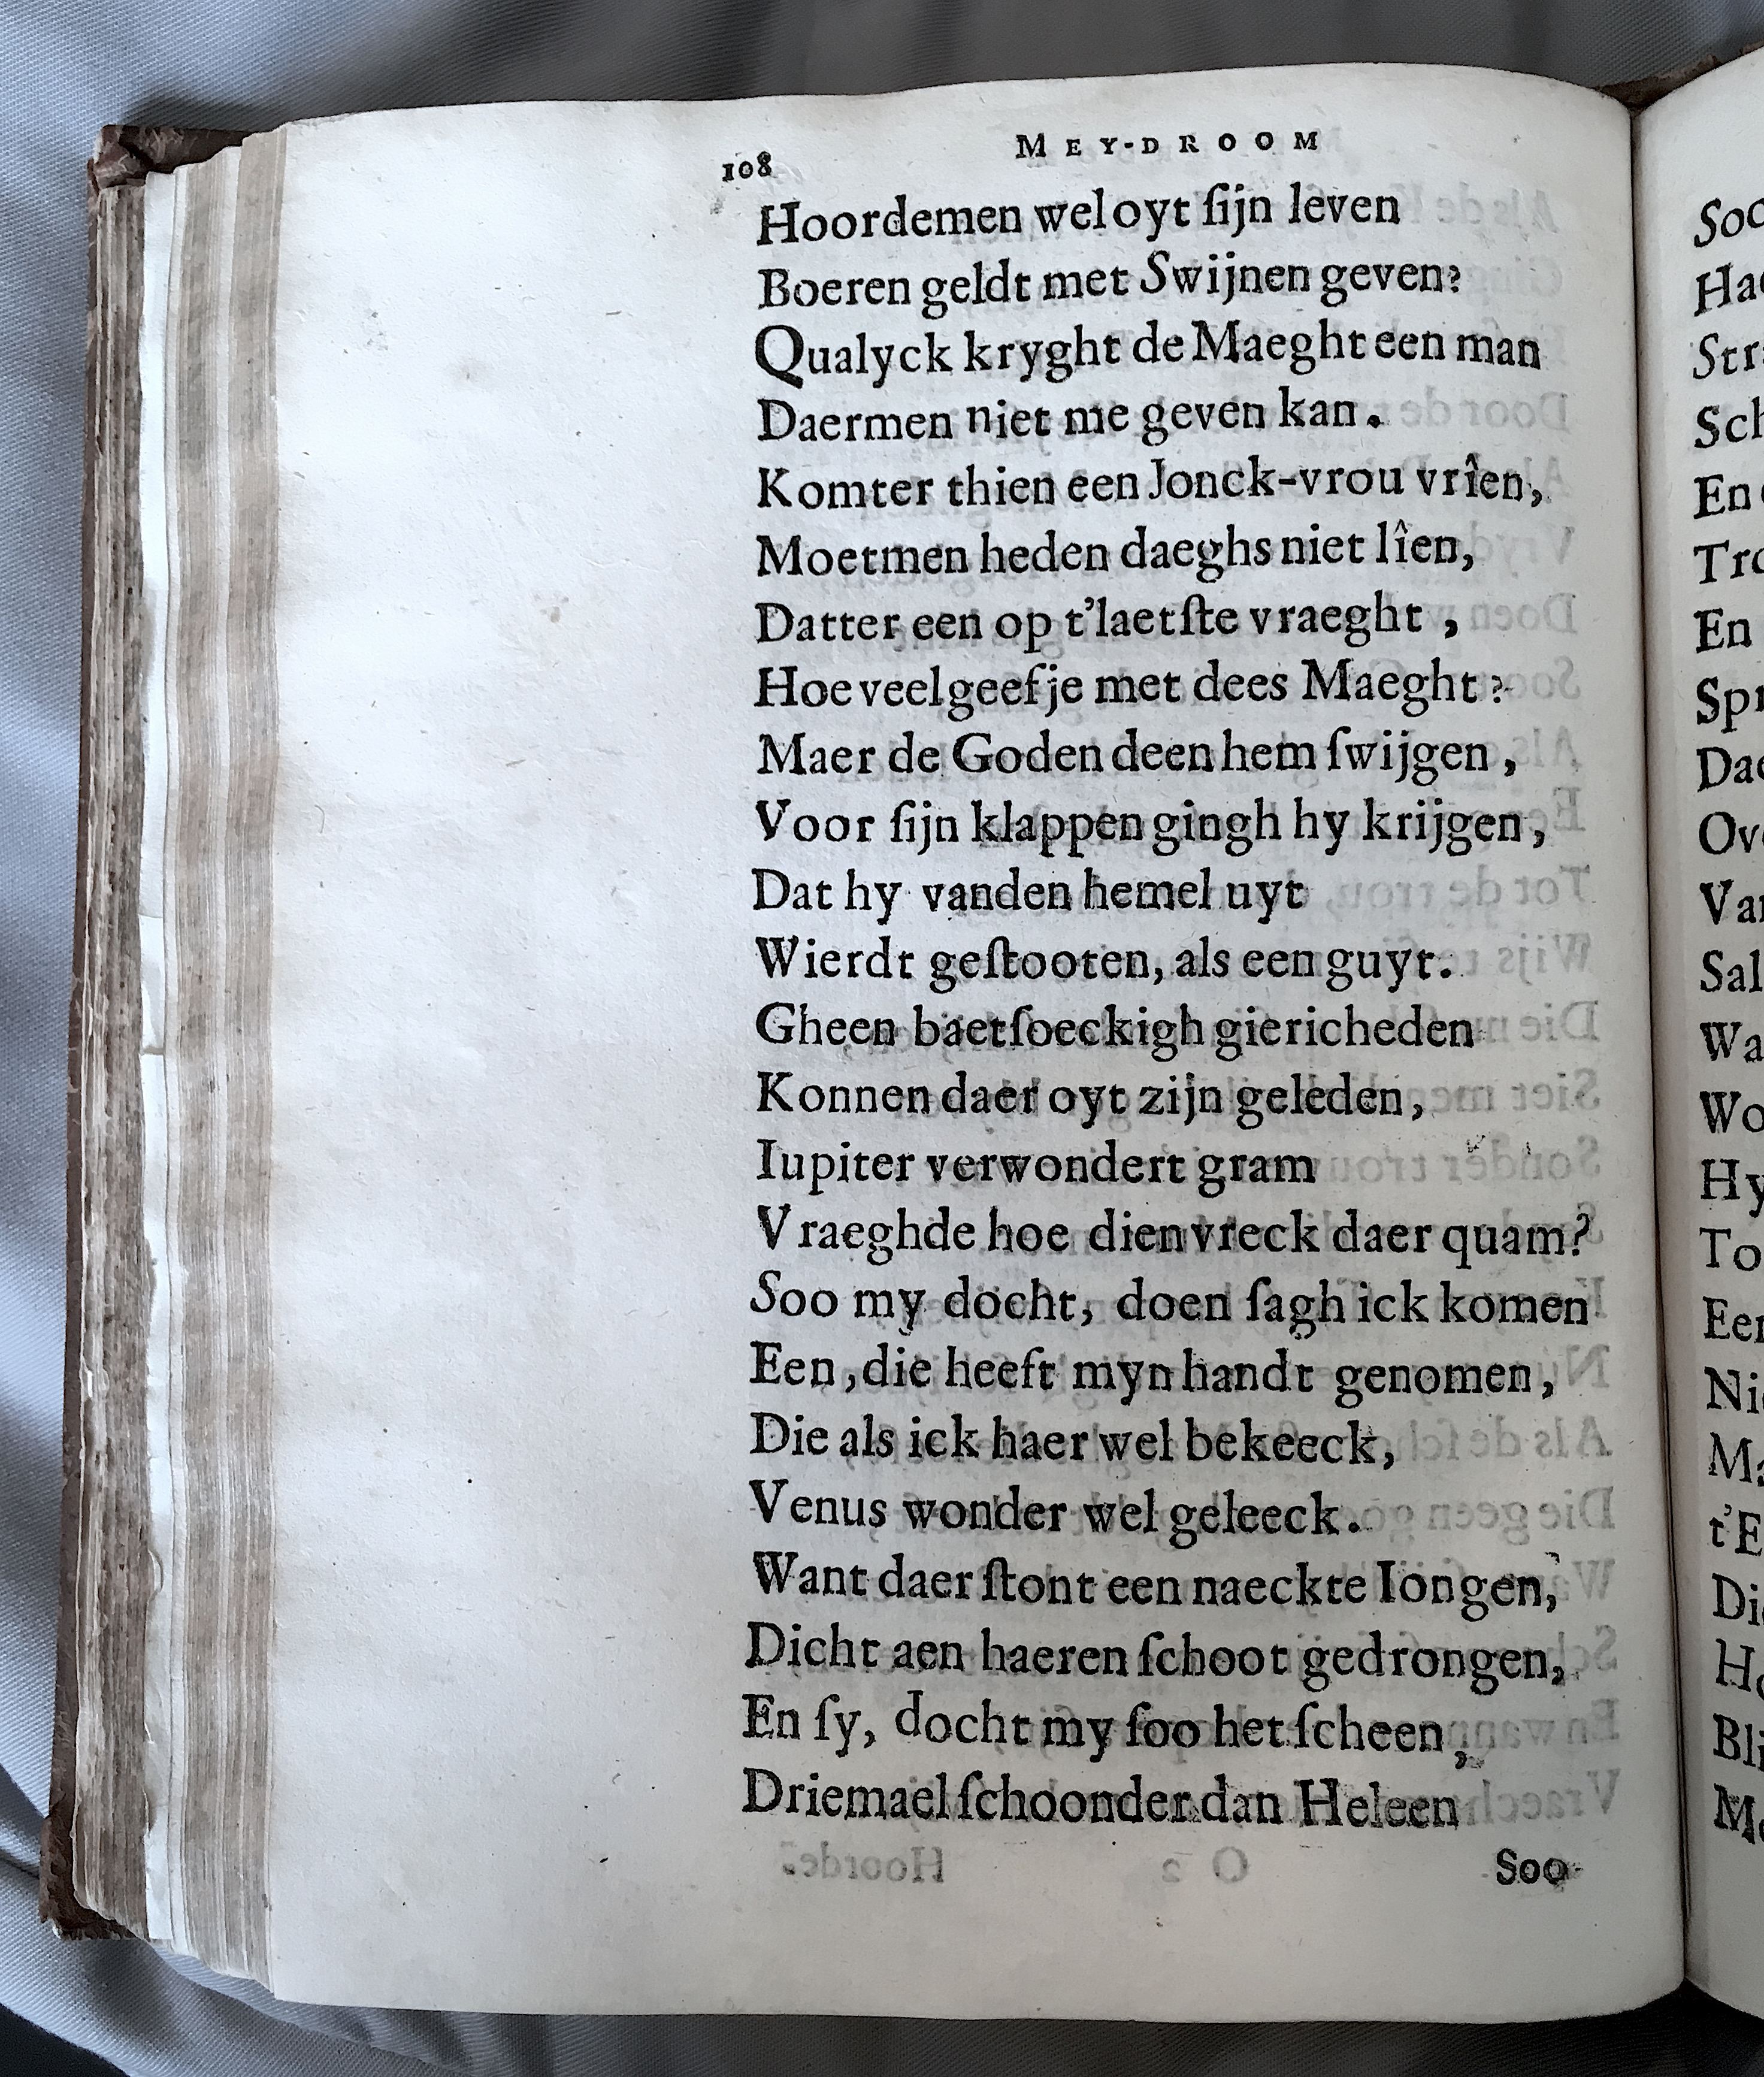 108
MEY-DROOM
Hoordemen wel oyt ſijn leven
Boeren geldt met Swijnen geven?
Qualyck kryght de Maeght een man
Daermen niet me geven kan.
Komter thien een Jonck-vrou vrîen,
Moetmen heden daeghs niet lîen,
Datter een op t'laetſte vraeght,
Hoe veel geef je met dees Maeght?
Maer de Goden deen hem ſwijgen,
Voor ſijn klappen gingh hy krijgen,
Dat hy vanden hemel uyt
Wierdt geſtooten, als een guyt.
Gheen baetſoeckigh giericheden
Konnen daer oyt zijn geleden,
Iupiter verwondert gram
Vraeghde hoe dien vreck daer quam?
Soo my docht, doen ſagh ick komen
Een, die heeft myn handt genomen,
Die als ick haer wel bekeeck,
Venus wonder wel geleeck.
Want daer ſtont een naeckte Iongen,
Dicht aen haeren ſchoot gedrongen,
En ſy, docht my ſoo het ſcheen,
Driemael ſchoonder dan Heleen
Soo